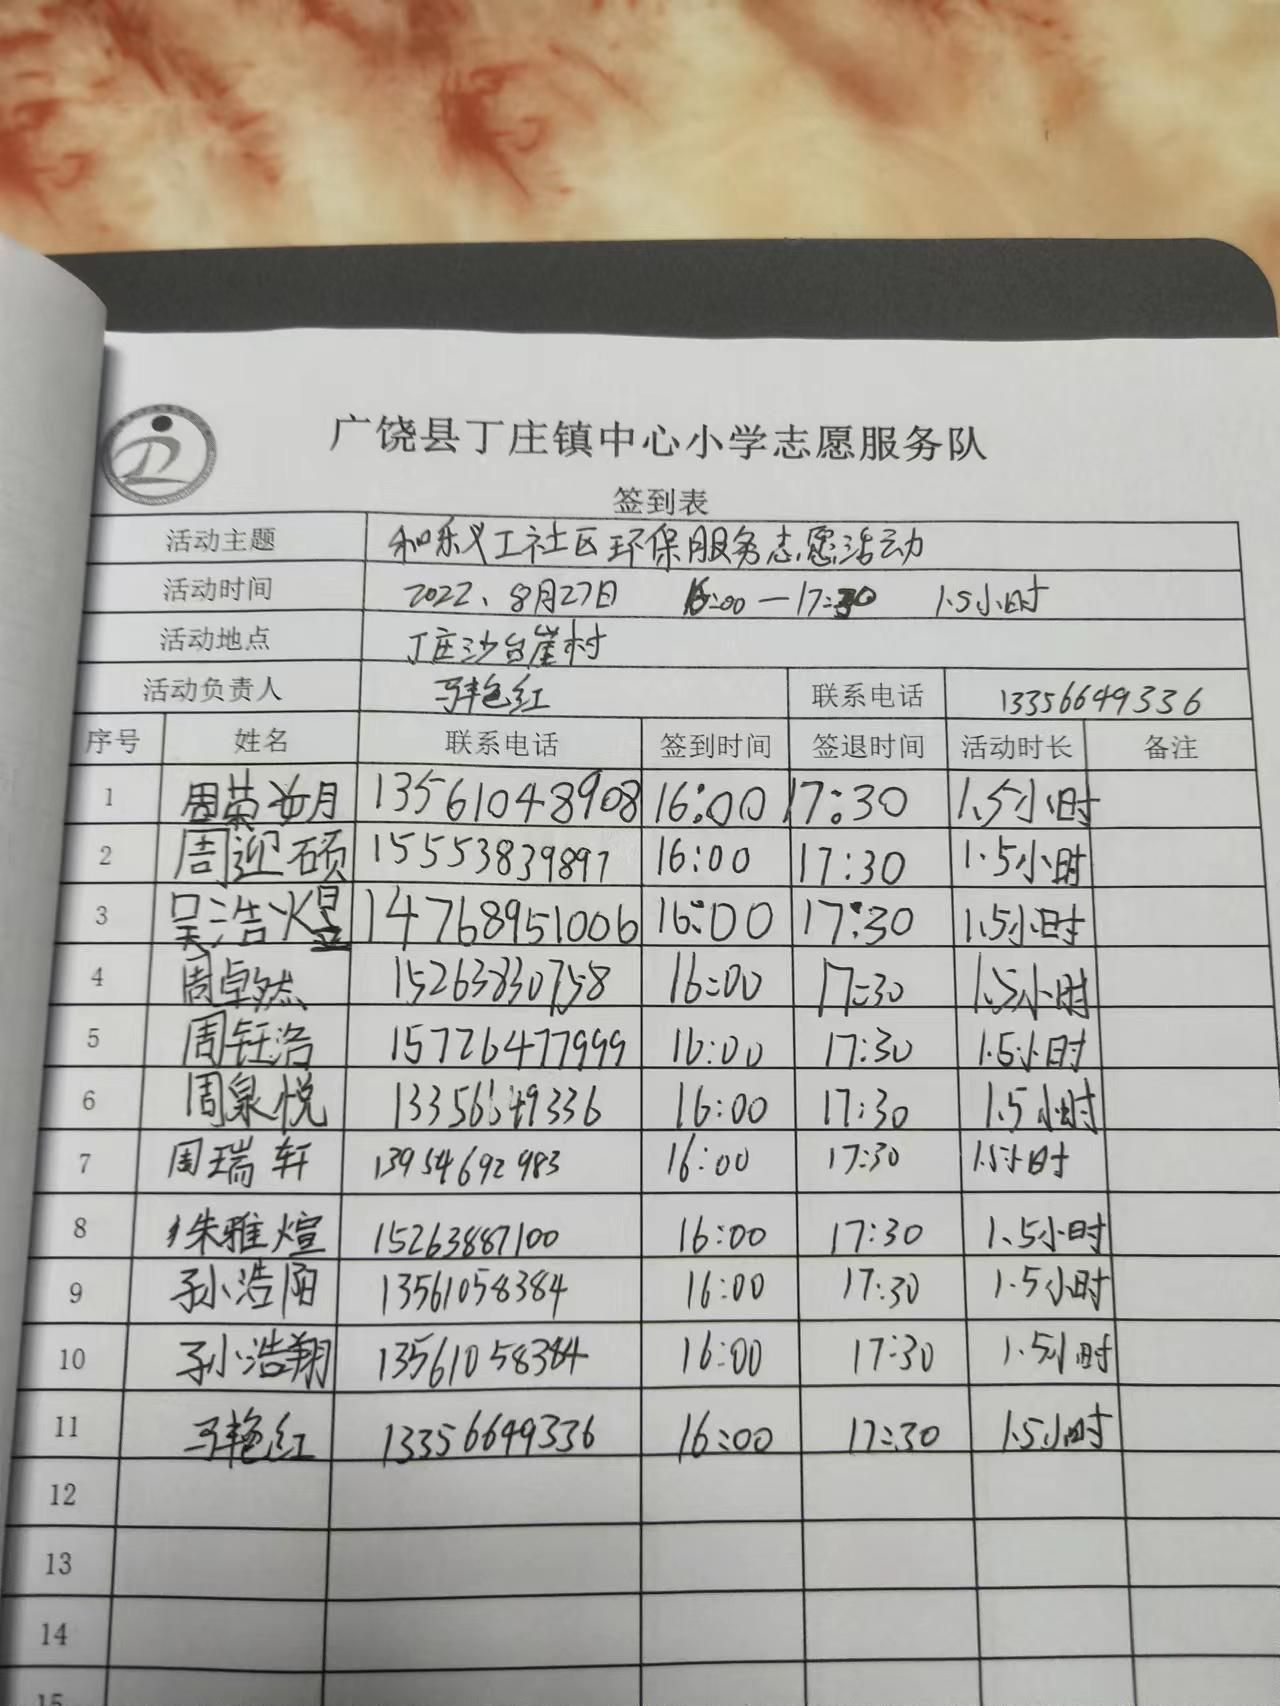 广饶县丁庄镇中心小学志愿服务队
签到表
活动主题 和乐义工社区环保服务志愿活动
活动时间 2022、8月27日 16:00—17:30 1.5小时
活动地点 丁庄沙台崖村
活动负责人 马艳红 联系电话 13356649336
序号 姓名 联系电话 签到时间 签退时间 活动时长 备注
1 周荣汝月 13561048908 16:00 17:30 1.5小时
2 周迎硕 15553839897 16:00 17:30 1.5小时
3 吴浩煜 14768951006 16:00 17:30 1.5小时
4 周卓然 15263830758 16:00 17:30 1.5小时
5 周钰浩 15726477999 16:00 17:30 1.5小时
6 周泉悦 13356649336 16:00 17:30 1.5小时
7 周瑞轩 13954692983 16:00 17:30 1.5小时
8 徐雅煊 15263887100 16:00 17:30 1.5小时
9 孙浩阳 13561058384 16:00 17:30 1.5小时
10 孙浩翔 13561058384 16:00 17:30 1.5小时
11 马艳红 13356649336 16:00 17:30 1.5小时
12
13
14
15